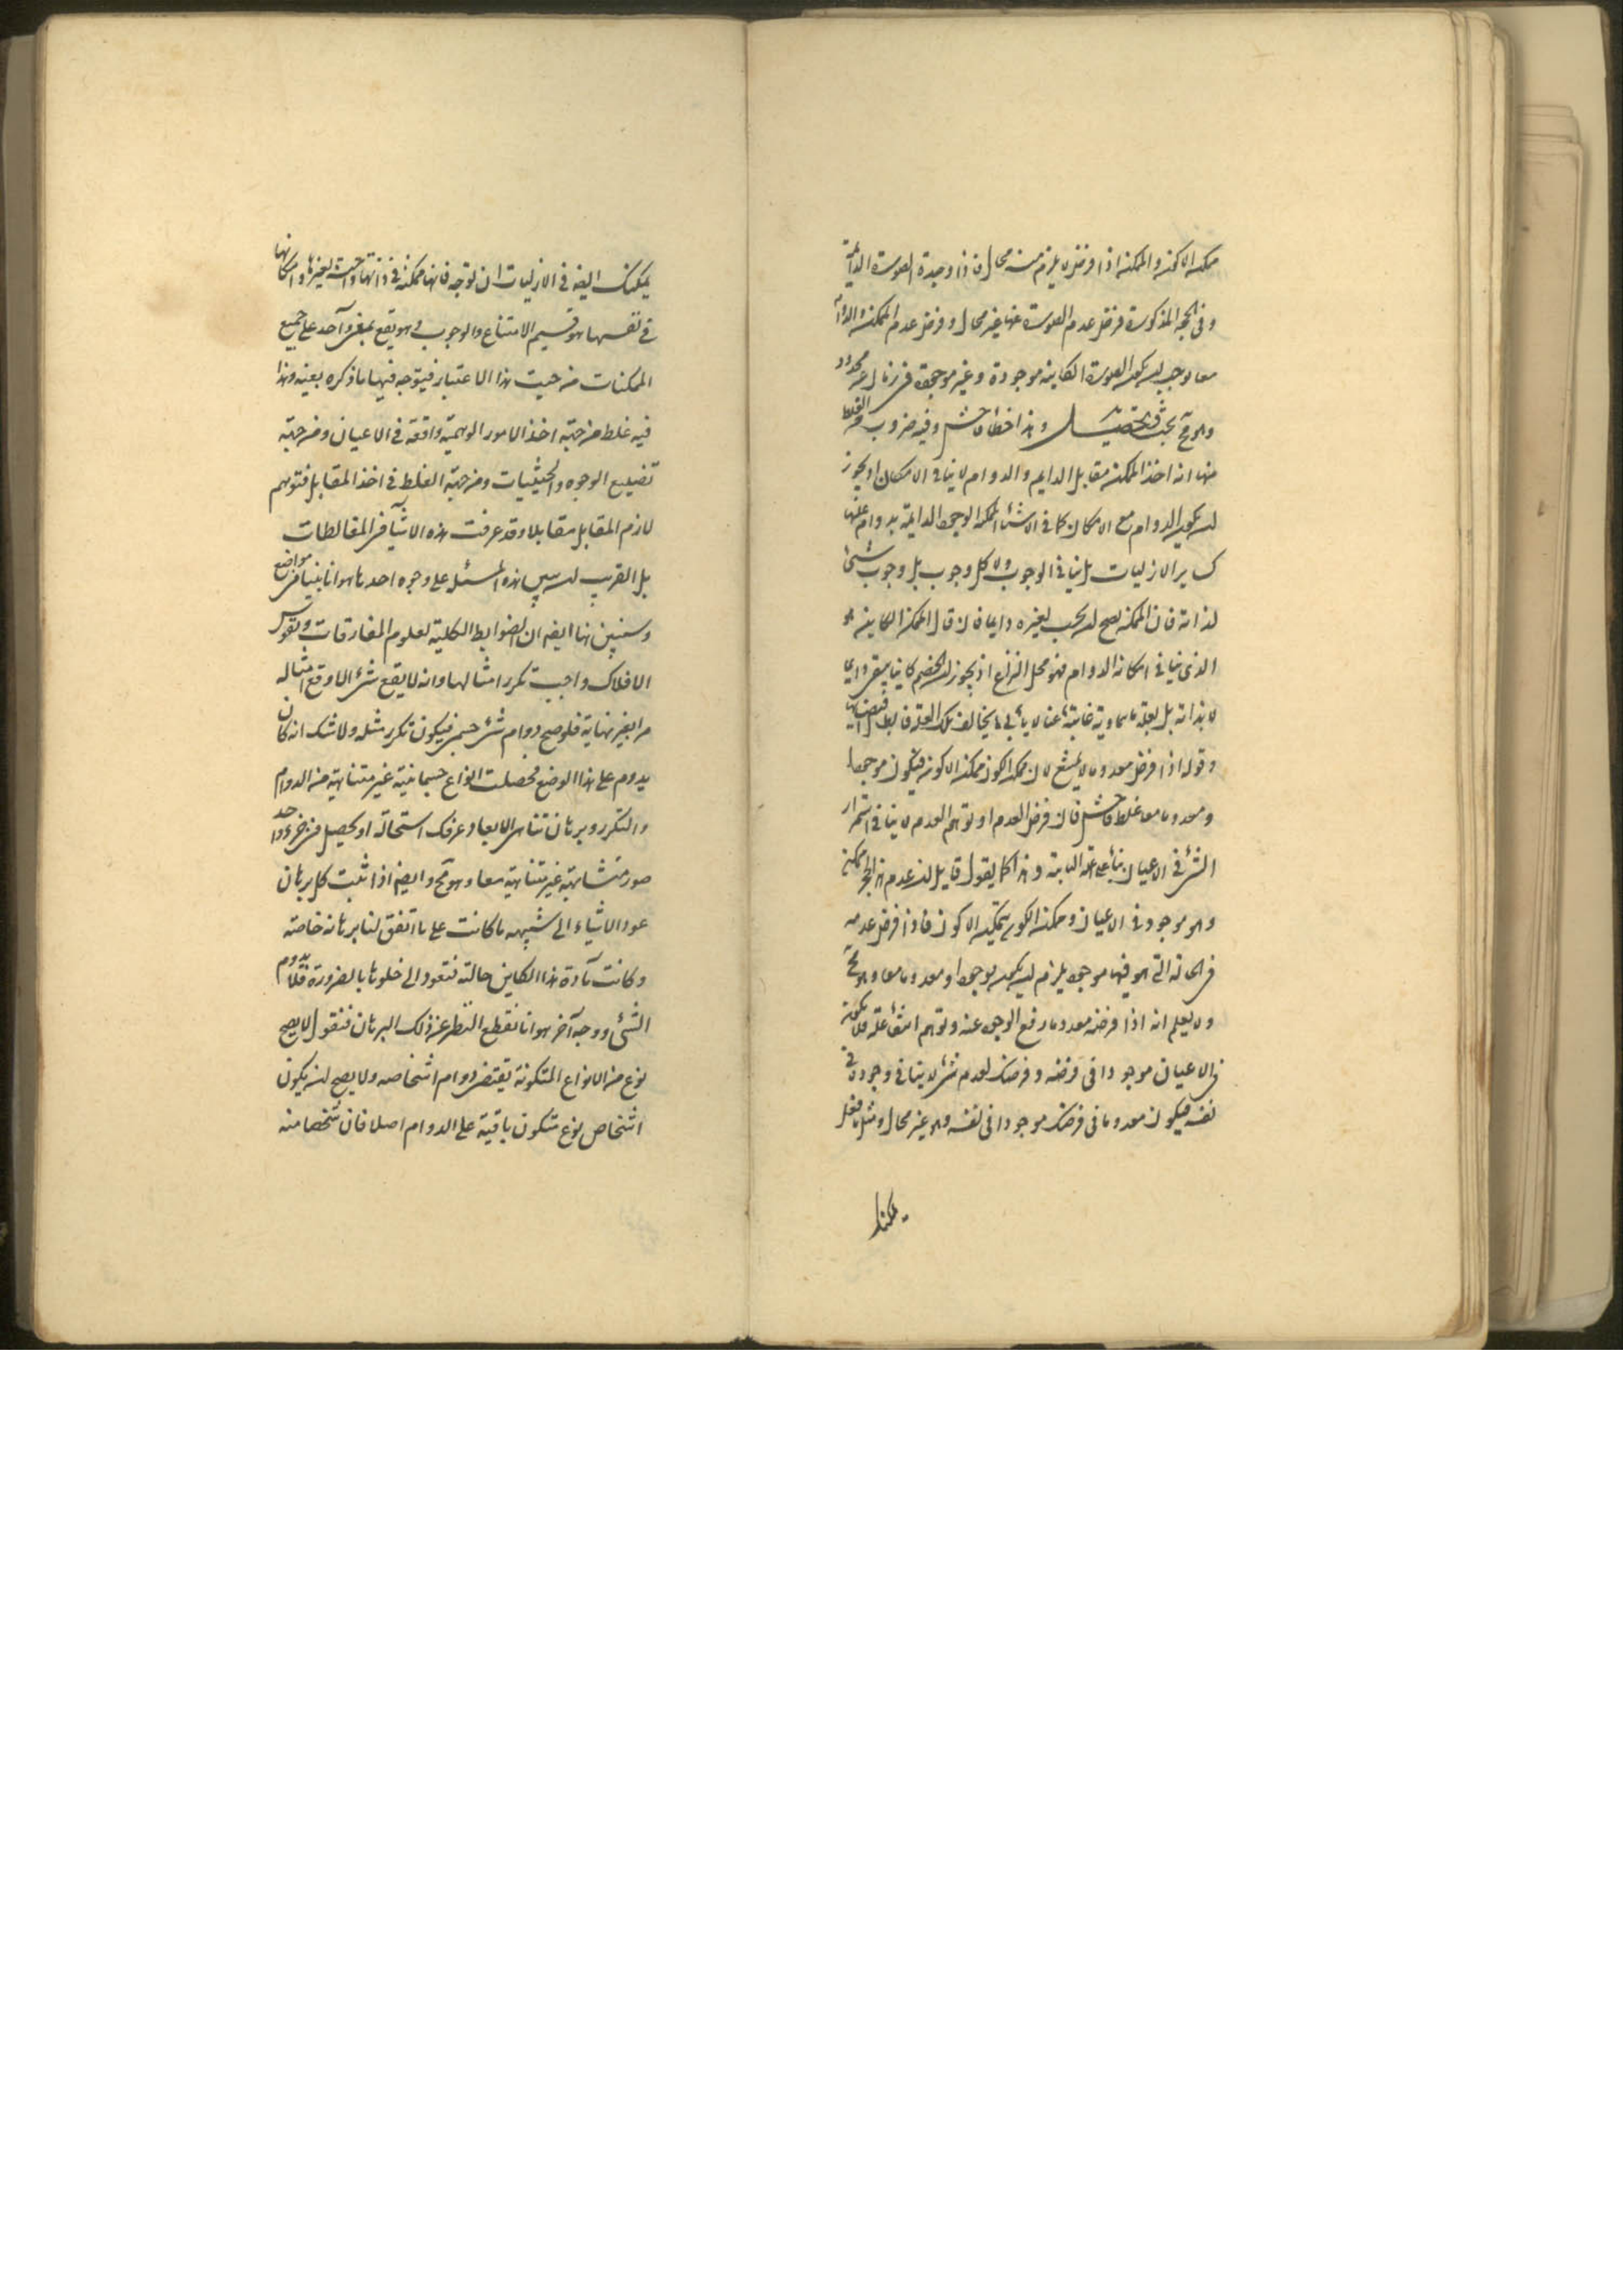 ممكنة الاكنه والممكنة اذا فرض لا يلزم منه محال فاذا وجدة الصورة الدائمة
وفى الحجة المذكورة فرض عدم الصورة عنها غير محال وفرض عدم الممكنة والدائمة
معا وجب ان يكون الصورة الكاينة موجودة وغير موجودة فى زمان غير محدود
وهو مح بحث وتحصيل وهذا خطأ فاحش وفيه ضروب من الغلط
منها انه اخذ الممكن مقابل الدايم والدوام لا ينافى الامكان اذ يجوز
ان يكون الدوام مع الامكان كما فى الاشياء الممكنة الوجود الدايمة بدوام عللها
كساير الازليات بل ينافى الوجوب ولا كل وجوب بل وجوب شئ
لذاته فان الممكن يصح ان يجب لغيره دايما فان قال الممكن الكاين هو
الذى ينافى امكانه الدوام فهو محل النزاع اذ يجوز الخصم كاينا يبقى دايما
لا بذاته بل بعلة سماوية غايته
وقوله اذا فرض معدوما لا يمتنع لان ممكن الكون ممكن الاكون فيكون موجودا
ومعدوما معا غلط فاحش فان فرض العدم او توهم العدم لا ينافى استمرار
الشئ فى الاعيان بناء على علته الثابتة وهذا كما يقول قايل ان عدم هذا الحجر ممكن
وهو موجود فى الاعيان وممكن الكون ممكن الاكون فاذا فرض عدمه
فى الحالة التى هو فيها موجود يلزم ان يكون موجودا ومعدوما معا وهو مح
ولا يعلم انه اذا فرضه معدوما رفع الوجود عنه وتوهم انتفاء علته فلا يكون
فى الاعيان موجودا فى فرضه وفرضك لعدم شئ لا ينافى وجوده فى
نفسه فيكون معدوما فى فرضك موجودا فى نفسه وهو غير محال ومثل ما فعل
يمكنك
يمكنك ايضا فى الازليات ان توجه فانها ممكنة فى ذاتها واجبة لغيرها وامكانها
فى نفسها هو قسيم الامتناع والوجوب وهو يقع بمعنى واحد على جميع
الممكنات من حيث هذا الاعتبار فيتوجه فيها ما ذكره بعينه وهذا
فيه غلط من جهة اخذ الامور الوهمية واقعة فى الاعيان ومن جهة
تضييع الوجوه والحيثيات ومن جهة الغلط فى اخذ المقابل فتوهم
لازم المقابل مقابلا وقد عرفت هذه الاشياء فى المغالطات
بل القريب ان يبين هذه المسئل على وجوه احدها هو انا بينا فى مواضع
وسنبين هنا ايضا ان الضوابط الكلية لعلوم المفارقات ونفوس
الافلاك واجبة تكرر امثالها وانه لا يقع شئ الا وقع امثاله
مرا بغير نهاية فلو صح دوام شئ جسمى فيكون تكرر مثله ولا شك انه كان
يدوم على هذا الوضع فحصلت انواع جسمانية غير متناهية من الدوام
والتكرر وبرهان تناهى الابعاد عرفك استحالته او يحصل فى جزء واحد
صور متشابهة غير متناهية معا وهو مح وايضا اذا ثبت كل برهان
عود الاشياء الى شبيهه ما كانت على ما اتفق لنا برهانه خاصة
وكانت مادة هذا الكاين خالية فتعود الى خلوها بالضرورة فلا يدوم
الشئ ووجه آخر هو انا نقطع النظر عن ذلك البرهان فنقول لا يصح
نوع من الانواع المتكونة يقتضى دوام اشخاصه ولا يصح ان يكون
اشخاص نوع متكون باقية على الدوام اصلا فان شخصا منه